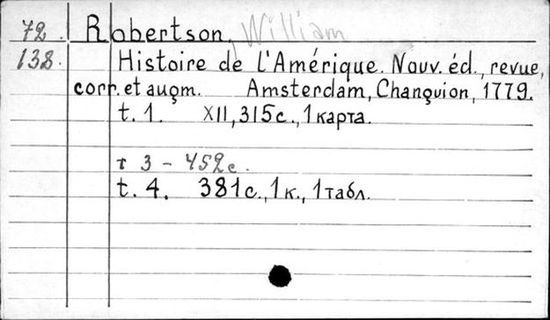 72. Robertson, William
138. Histoire de l'Amérique. Nouv. éd., revue,
corr. et augm. Amsterdam, Changuion, 1779.
t. 1. XII, 315с., 1 карта.
т 3 - 452с.
t. 4. 381с., 1к., 1 табл.